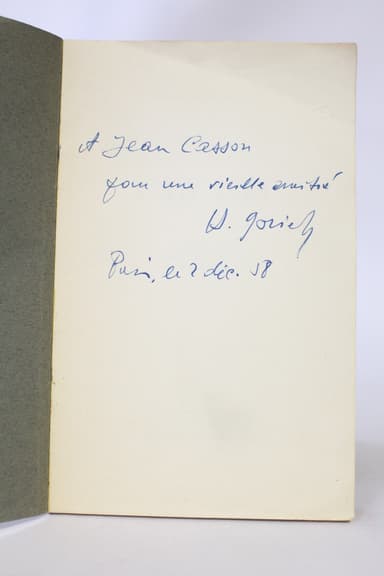 A Jean Casson
pour une vieille amitié
Paris, le 2 déc. 58